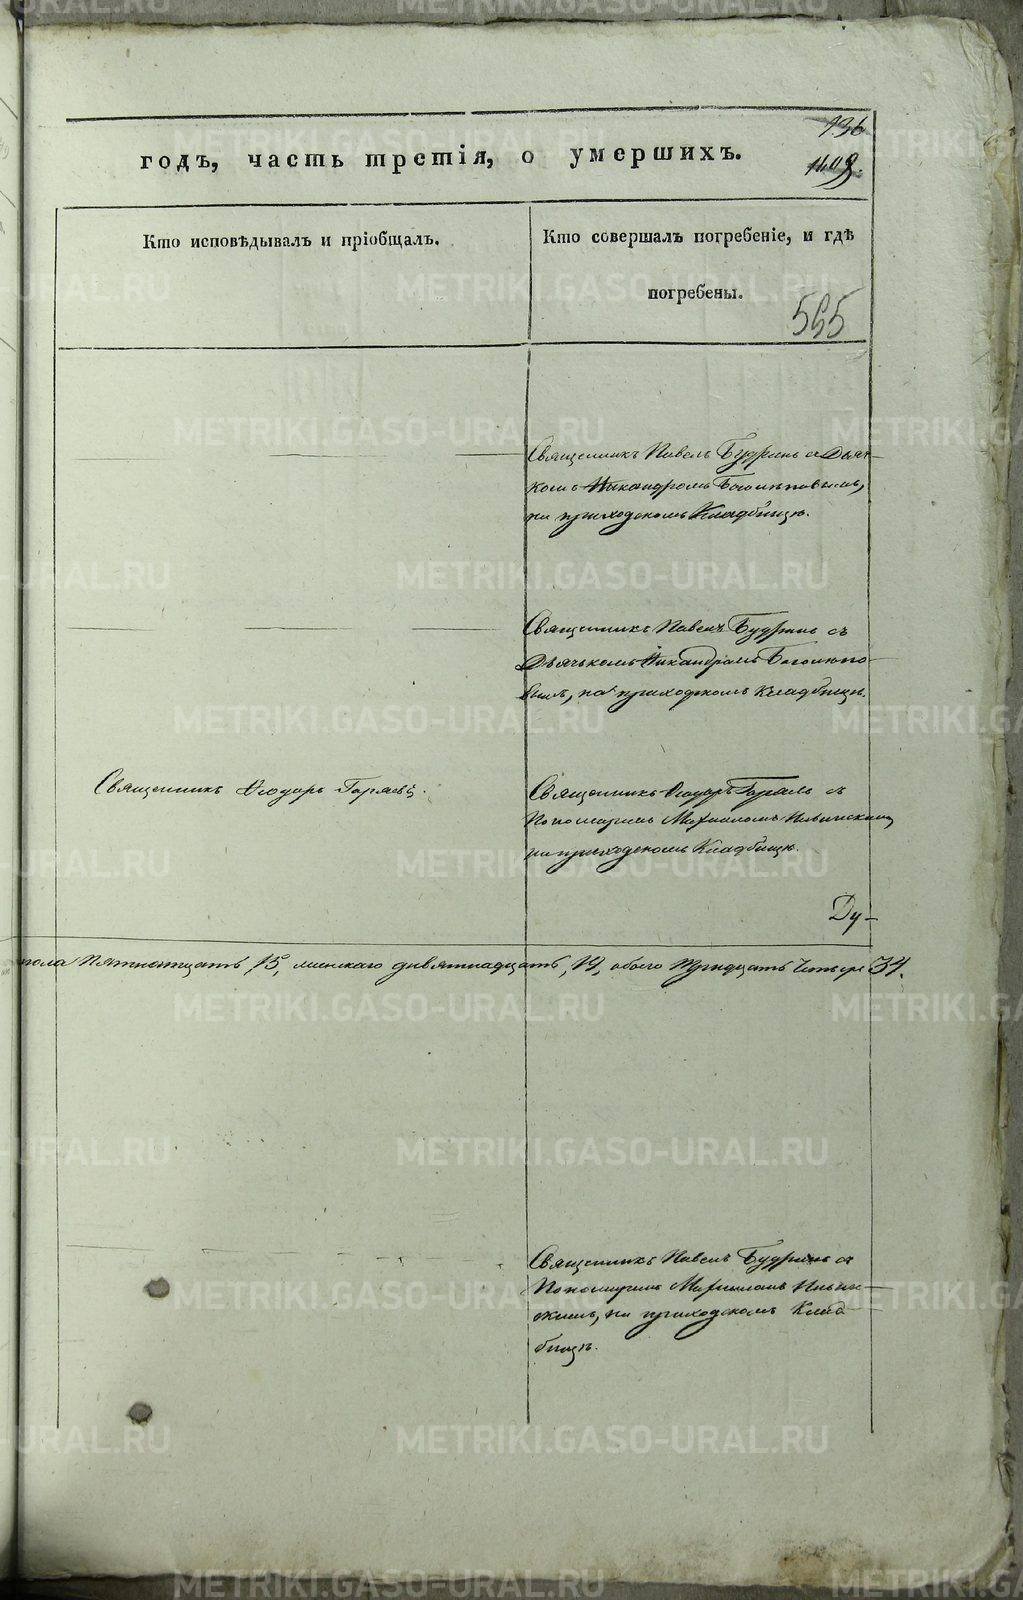 136
годъ, часть третія, о умершихъ.
1409.
Кто исповѣдывалъ и пріобщалъ.
Кто совершалъ погребеніе, и гдѣ
погребены.
565
Священникъ Павелъ Будринъ съ Дьяч-
комъ Никандромъ Боголеповымъ,
на приходскомъ Кладбищѣ.
Священникъ Павелъ Будринъ съ
Дьячькомъ Никандромъ Боголепо-
вымъ, на приходскомъ Кладбищѣ.
Священникъ Ѳеодоръ
Священникъ Ѳеодоръ съ
Пономаремъ Михаиломъ
на приходскомъ Кладбищѣ.
Ду-
пола Пятнатцать 15, женскаго девятнадцать, 19, обоего Тридцать Четыре 34.
Священникъ Павелъ Будринъ съ
Пономаремъ Михаиломъ
на приходскомъ Клад-
бищѣ.
METRIKI.GASO-URAL.RU